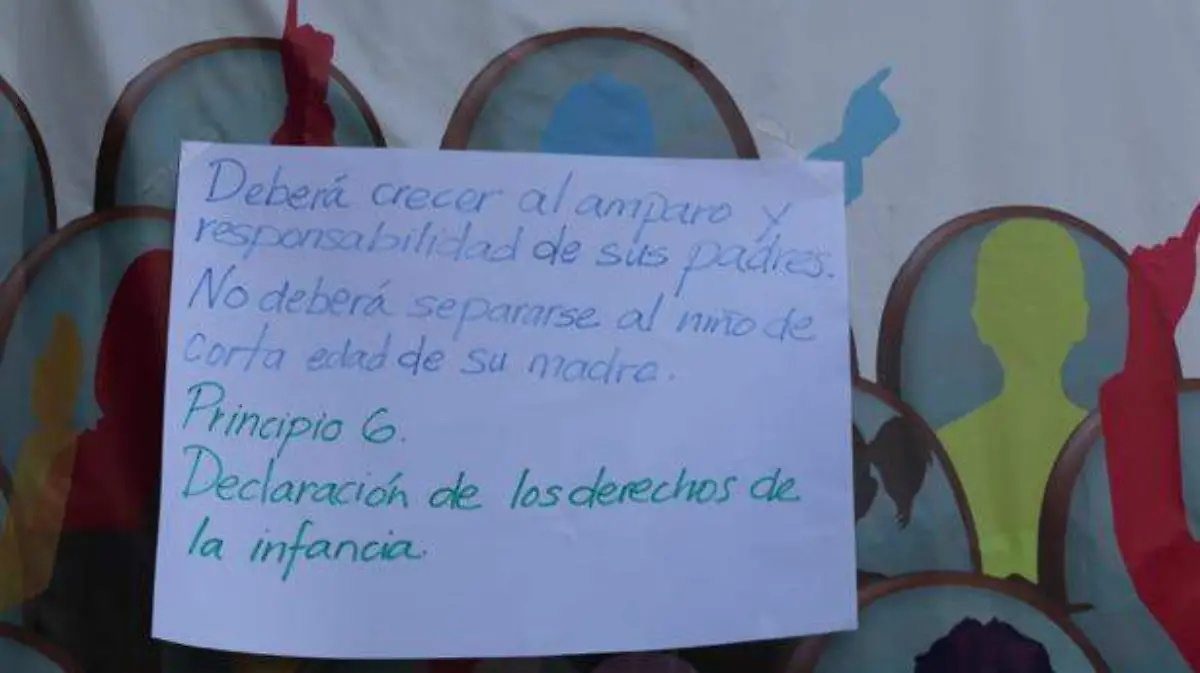 Deberá crecer al amparo y
responsabilidad de sus padres.
No deberá separarse al niño de
corta edad de su madre.
Principio 6.
Declaración de los derechos de
la infancia.